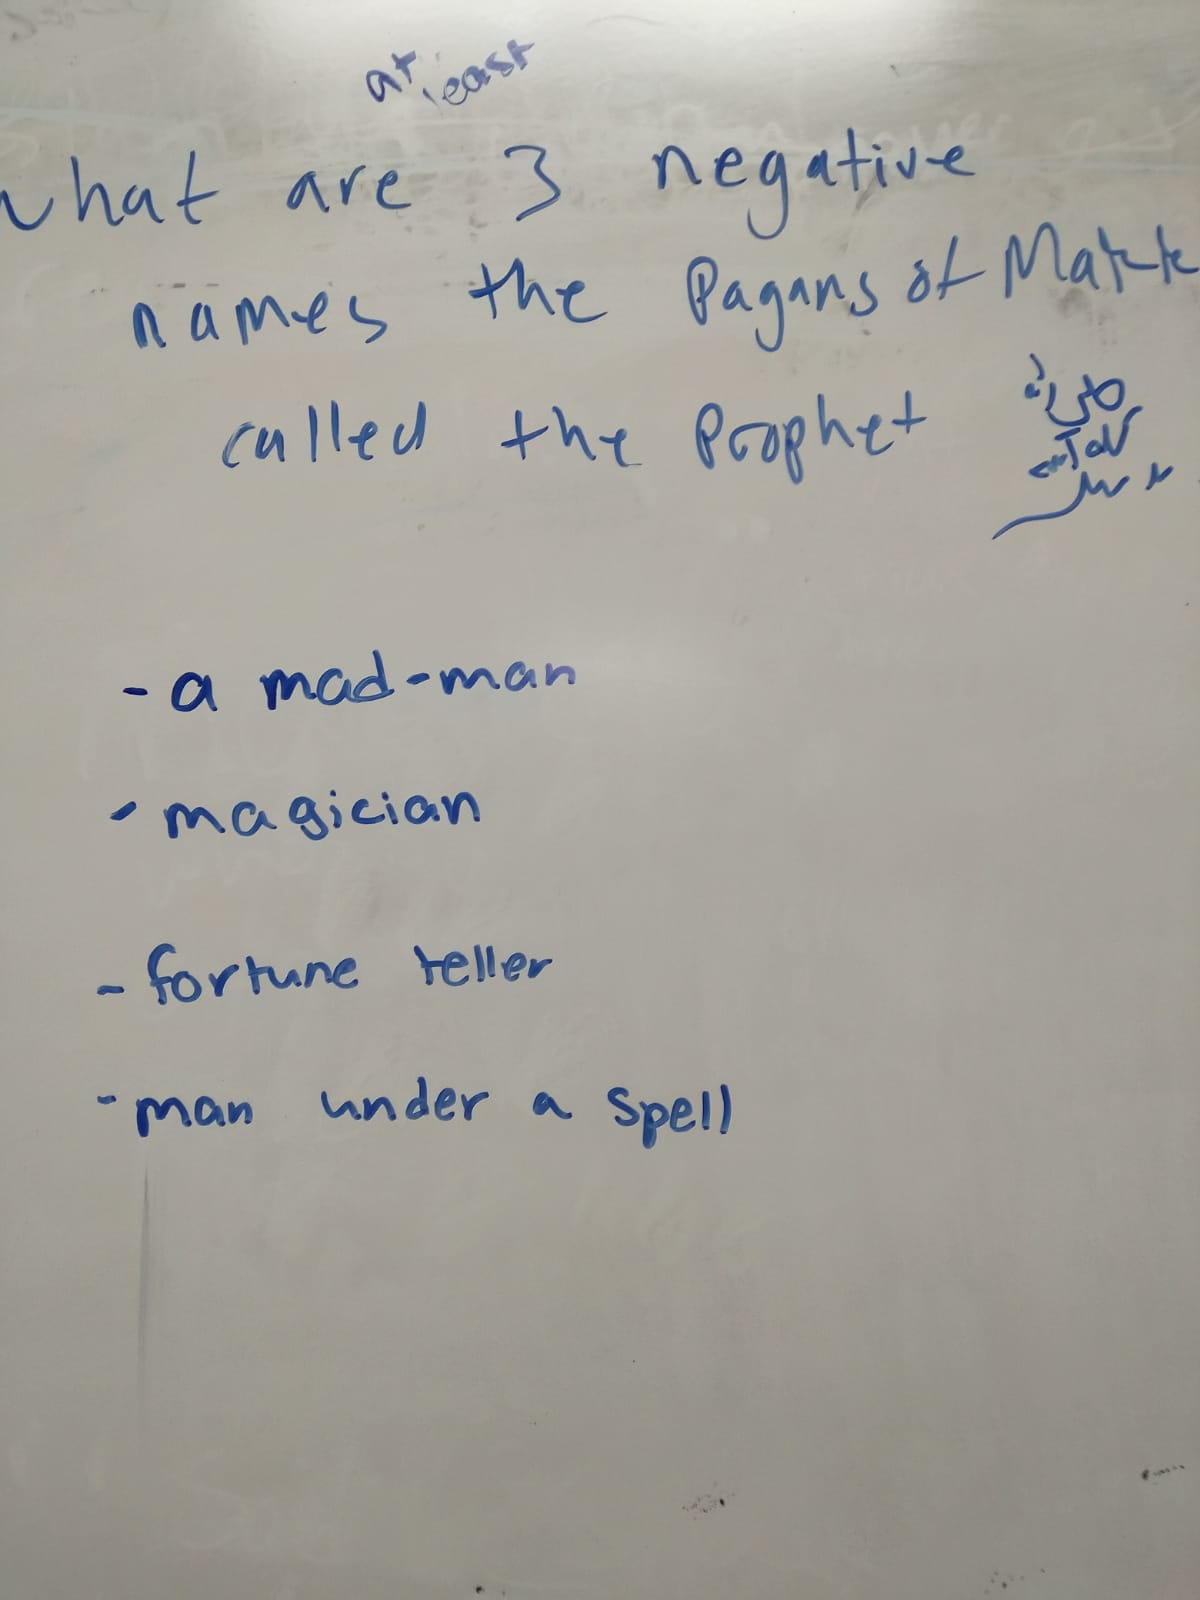 at least
what are 3 negative
names the Pagans of Makk
called the Prophet صلى الله عليه وسلم
- a mad-man
- magician
- fortune teller
- man under a spell